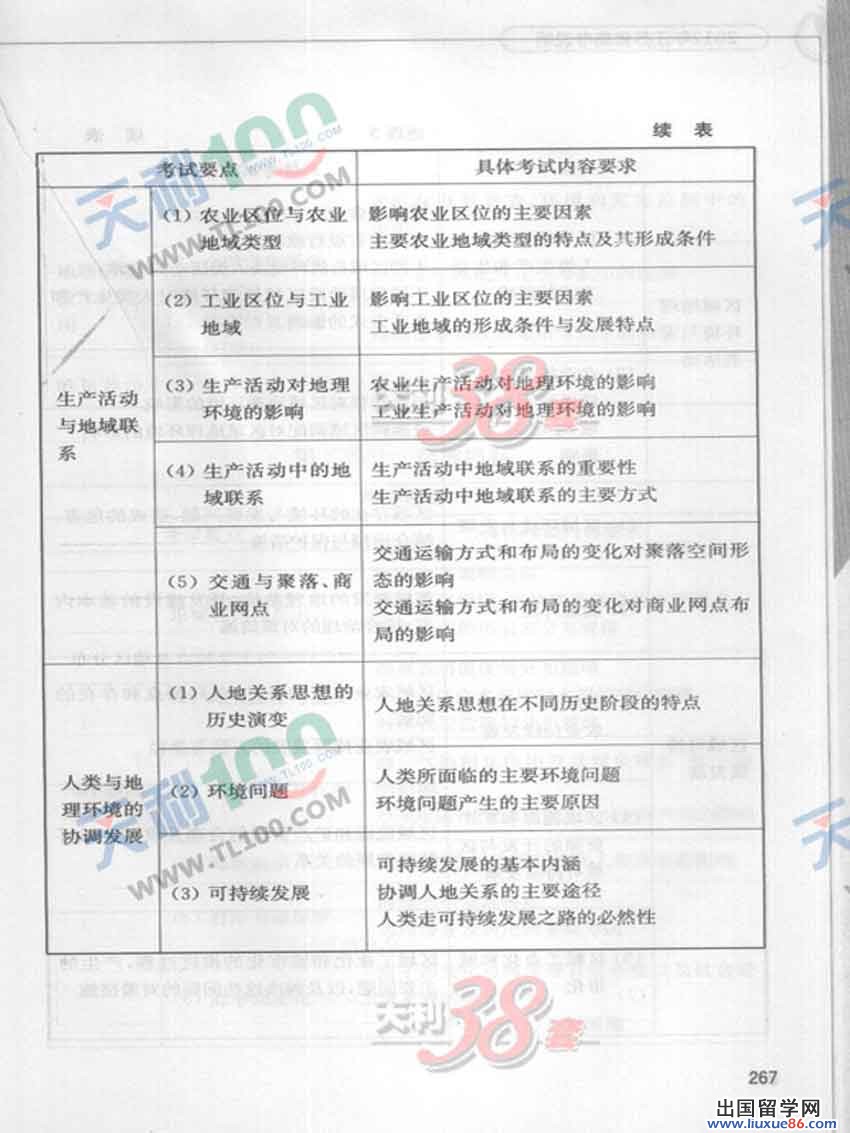 续 表
考试要点
具体考试内容要求
生产活动
与地域联
系
(1) 农业区位与农业
地域类型
影响农业区位的主要因素
主要农业地域类型的特点及其形成条件
(2) 工业区位与工业
地域
影响工业区位的主要因素
工业地域的形成条件与发展特点
(3) 生产活动对地理
环境的影响
农业生产活动对地理环境的影响
工业生产活动对地理环境的影响
(4) 生产活动中的地
域联系
生产活动中地域联系的重要性
生产活动中地域联系的主要方式
(5) 交通与聚落、商
业网点
交通运输方式和布局的变化对聚落空间形
态的影响
交通运输方式和布局的变化对商业网点布
局的影响
人类与地
理环境的
协调发展
(1) 人地关系思想的
历史演变
人地关系思想在不同历史阶段的特点
(2) 环境问题
人类所面临的主要环境问题
环境问题产生的主要原因
(3) 可持续发展
可持续发展的基本内涵
协调人地关系的主要途径
人类走可持续发展之路的必然性
天利100
WWW.TL100.COM
天利38套
天利100
WWW.TL100.COM
天利38套
267
出国留学网
www.liuxue86.com